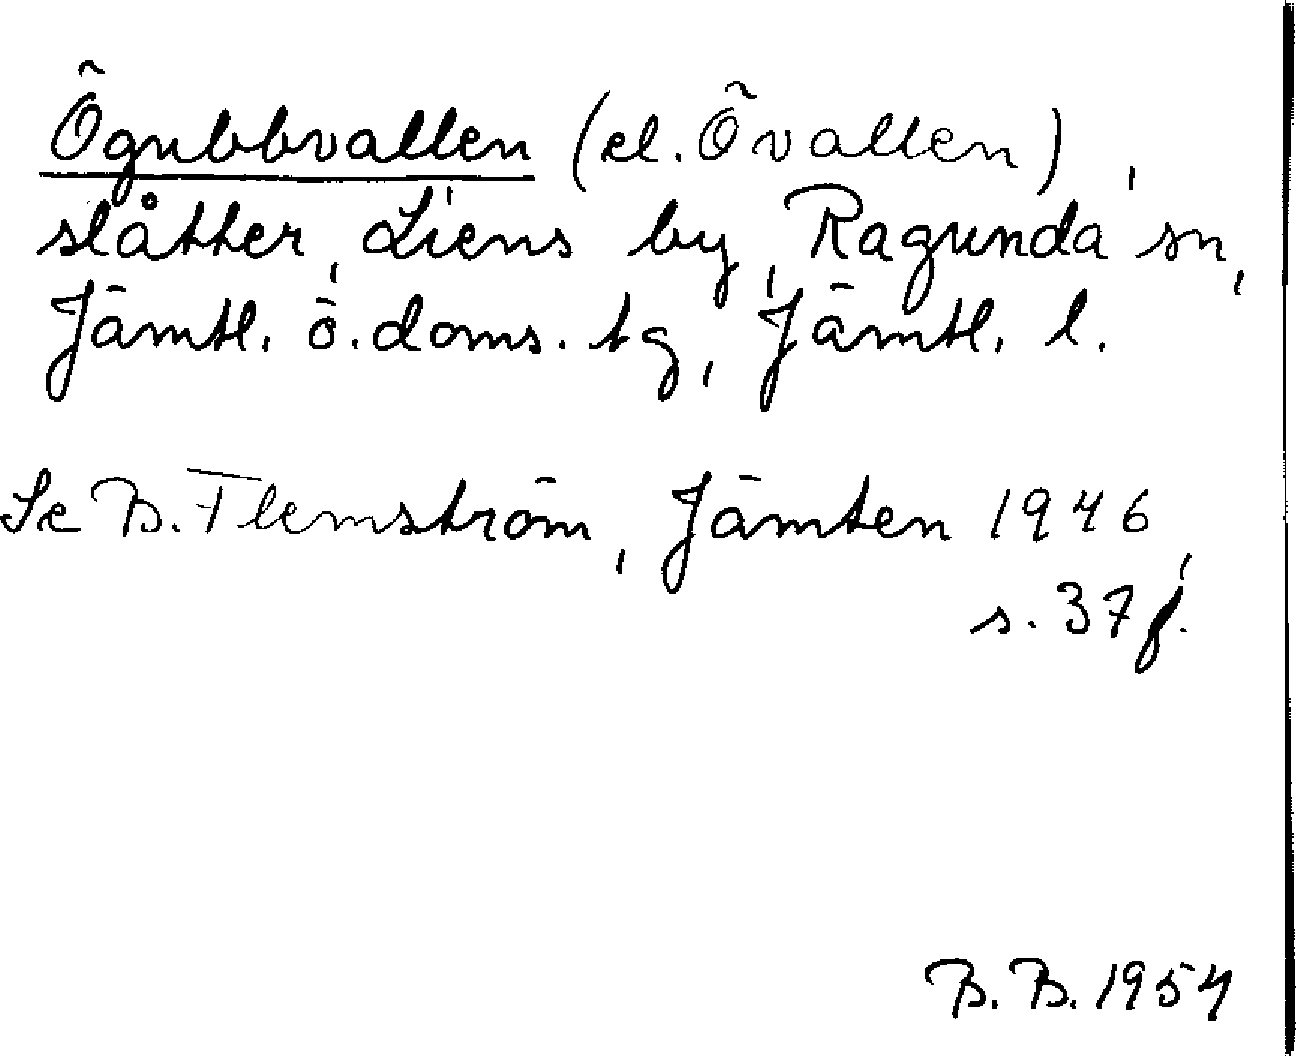 Ögubbvallen (el. Övallen),
slåtter, Liens by, Ragunda sn,
Jämtl. ö. doms. tg, Jämtl. l.
Se B. Flemström, Jämten 1946,
s. 37 f.
B. B. 1954